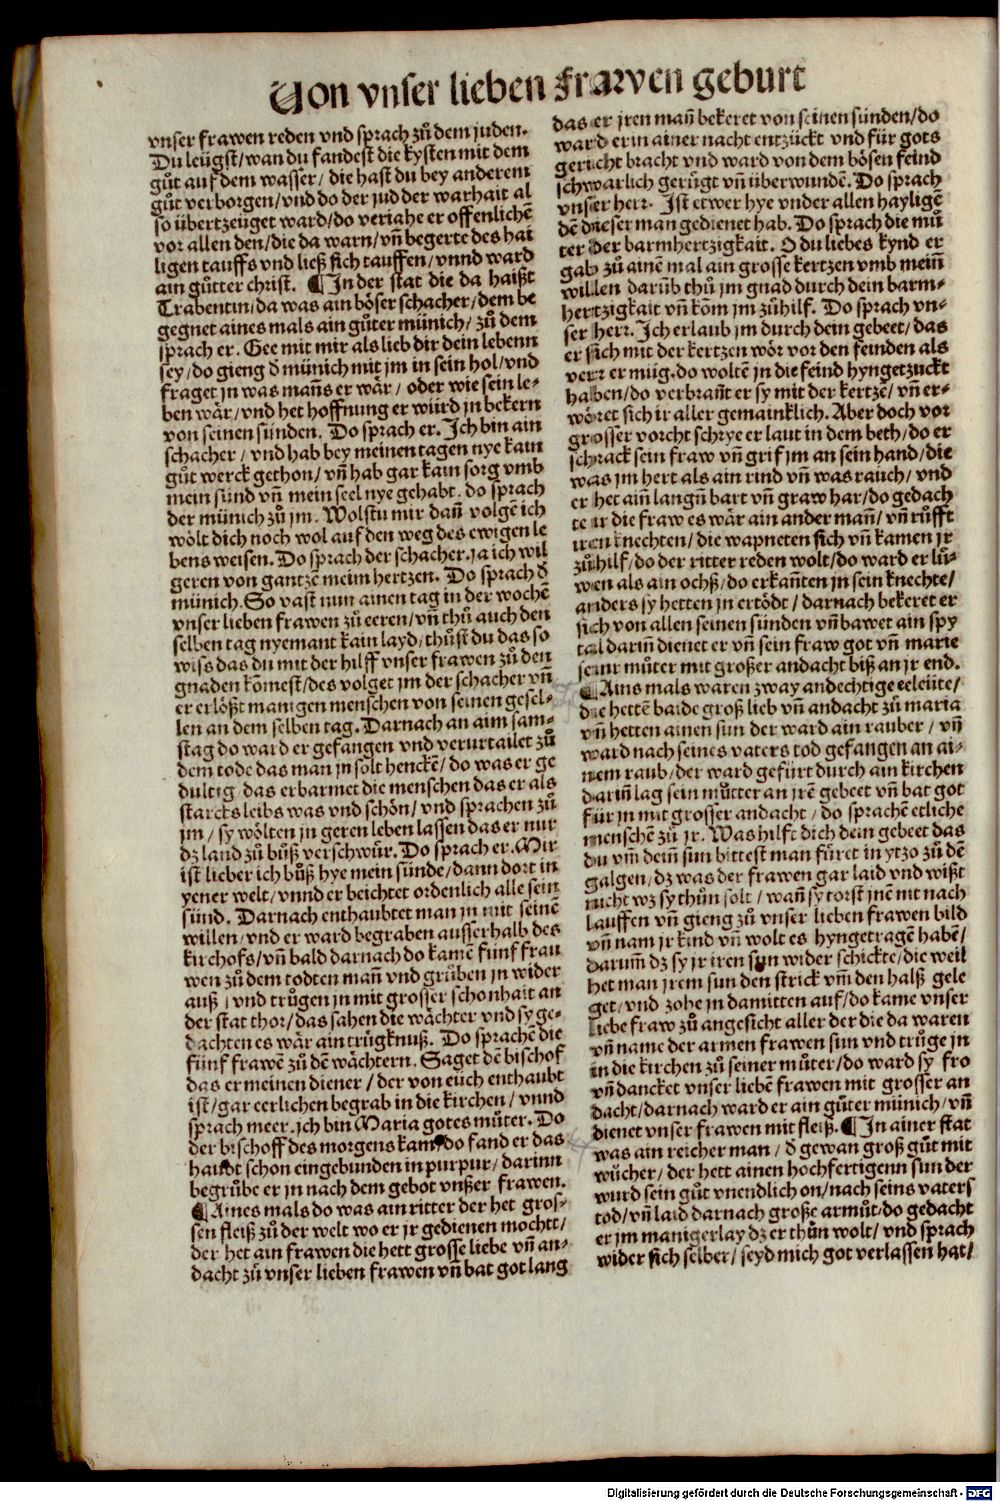 Von vnser lieben frawen geburt
vnser frawen reden vnd sprach zů dem juden.
Du leügst/wan du fandest die kysten mit dem
gůt auf dem wasser/ die hast du bey anderem
gůt verborgen/vnd do der jud der warhait al
so übertzeüget ward/do veriahe er offenlichē
vor allen den/die da warn/vñ begerte des hai
ligen tauffs vnd ließ sich tauffen/vnnd ward
ain gůtter christ. ¶In der stat die da haißt
Trabentin/da was ain böser schacher/dem be
gegnet aines mals ain gůter münich/ zů dem
sprach er. Gee mit mir als lieb dir dein lebenn
sey/do gieng d̄ münich mit jm in sein hol/vnd
fraget jn was mañs er wär/ oder wie sein le-
ben wär/vnd het hoffnung er würd jn bekern
von seinen sünden. Do sprach er. Ich bin ain
schacher/ vnd hab bey meinen tagen nye kain
gůt werck gethon/ vñ hab gar kain sorg vmb
mein sünd vñ mein seel nye gehabt. do sprach
der münich zů jm. Wolstu mir dañ volgē ich
wölt dich noch wol auf den weg des ewigen le
bens weisen. Do sprach der schacher.ja ich wil
geren von gantzē meim hertzen. Do sprach d̄
münich. So vast nun ainen tag in der wochē
vnser lieben frawen zů eeren/vñ thů auch den
selben tag nyemant kain layd/thůst du das so
wiss das du mit der hilff vnser frawen zů den
gnaden kōmest/des volget jm der schacher vñ
er erlößt manigen menschen von seinen gesel-
len an dem selben tag. Darnach an aim sam-
stag do ward er gefangen vnd verurtailet zů
dem tode das man jn solt henckē/do was er ge
dultig das erbarmet die menschen das er als
starcks leibs was vnd schön/vnd sprachen zů
jm/ sy wölten jn geren leben lassen das er nur
dz land zů bůß verschwür. Do sprach er. Mir
ist lieber ich bůß hye mein sünde/dann dort in
yener welt/vnnd er beichtet ordenlich alle sein
sünd. Darnach enthaubtet man jn mit seinē
willen/vnd er ward begraben ausserhalb des
kirchofs/vñ bald darnach do kamē fünf frau
wen zů dem todten mañ vnd grůben jn wider
auß/vnd trůgen jn mit grosser schonhait an
der stat thor/das sahen die wächter vnd sy ge-
dachten es wär ain trügknuß. Do sprachē die
fünf frawē zů dē wächtern. Saget dē bischof
das er meinen diener/der von euch enthaubt
ist/gar eerlichen begrab in die kirchen/vnnd
sprach meer.ich bin Maria gotes můter. Do
der bischoff des morgens kam do fand er das
haubt schon eingebunden in purpur/darinn
begrůbe er jn nach dem gebot vnßer frawen.
¶Aines mals do was ain ritter der het gros-
sen fleiß zů der welt wo er jr gedienen mochtt/
der het ain frawen die hett grosse liebe vñ an-
dacht zů vnser lieben frawen vñ bat got lang
das er jren mañ bekeret von seinen sünden/do
ward er in ainer nacht entzückt vnd für gots
gericht bracht vnd ward von dem bösen feind
schwarlich gerügt vñ überwundē. Do sprach
vnser herr. Ist etwer hye vnder allen hayligē
dē dieser man gedienet hab. Do sprach die mů
ter der barmhertzigkait. O du liebes kynd er
gab zů ainē mal ain grosse kertzen vmb meiñ
willen darüb thů jm gnad durch dein barm-
hertzigkait vñ kōm jm zů hilf. Do sprach vn-
ser herr. Ich erlaub jm durch dein gebeet/das
er sich mit der kertzen wör vor den feinden als
verr er müg.do woltē jn die feind hyngetzuckt
haben/do verbrañt er sy mit der kertzē/ vñ er-
wöret sich ir aller gemainklich. Aber doch vor
grosser vorcht schrye er laut in dem beth/do er
schrack sein fraw vñ grif jm an sein hand/die
was jm hert als ain rind vñ was rauch/ vnd
er het aiñ langñ bart vñ graw har/do gedach
te ir die fraw es wär ain ander mañ/ vñ růfft
iren knechten/die wapneten sich vñ kamen jr
zů hilf/do der ritter reden wolt/do ward er lü-
wen als ain ochß/do erkañten jn sein knechte/
anders sy hetten jn ertödt/darnach bekeret er
sich von allen seinen sünden vñ bawet ain spy
tal dariñ dienet er vñ sein fraw got vñ marie
seinr můter mit großer andacht biß an jr end.
¶Ains mals waren zway andechtige eeleüte/
die hettē baide groß lieb vñ andacht zů maria
vñ hetten ainen sun der ward ain rauber/ vñ
ward nach seines vaters tod gefangen an ai-
nem raub/der ward gefürt durch ain kirchen
dariñ lag sein můtter an jrē gebeet vñ bat got
für jn mit grosser andacht/ do sprachē etliche
menschē zů jr. Was hilft dich dein gebeet das
du vm̄ deiñ sun bittest man füret in ytzo zů dē
galgen/dz was der frawen gar laid vnd wißt
nicht wz sy thůn solt/ wañ sy torst jnē nit nach
lauffen vñ gieng zů vnser lieben frawen bild
vñ nam jr kind vñ wolt es hyngetragē habē/
darum̄ dz sy jr iren sun wider schickte/die weil
het man jrem sun den strick vm̄ den halß gele
get/vnd zohe jn damitten auf/do kame vnser
liebe fraw zů angesicht aller der die da waren
vñ name der armen frawen sun vnd trůge jn
in die kirchen zů seiner můter/do ward sy fro
vñ dancket vnser liebē frawen mit grosser an
dacht/darnach ward er ain gůter münich/vñ
dienet vnser frawen mit fleiß. ¶In ainer stat
was ain reicher man/ d̄ gewan groß gůt mit
wůcher/der hett ainen hochfertigenn sun der
wurd sein gůt vnendlich on/nach seins vaters
tod/vñ laid darnach große armůt/do gedacht
er jm manigerlay dz er thůn wolt/ vnd sprach
wider sich selber/ seyd mich got verlassen hat/
Digitalisierung gefördert durch die Deutsche Forschungsgemeinschaft - DFG